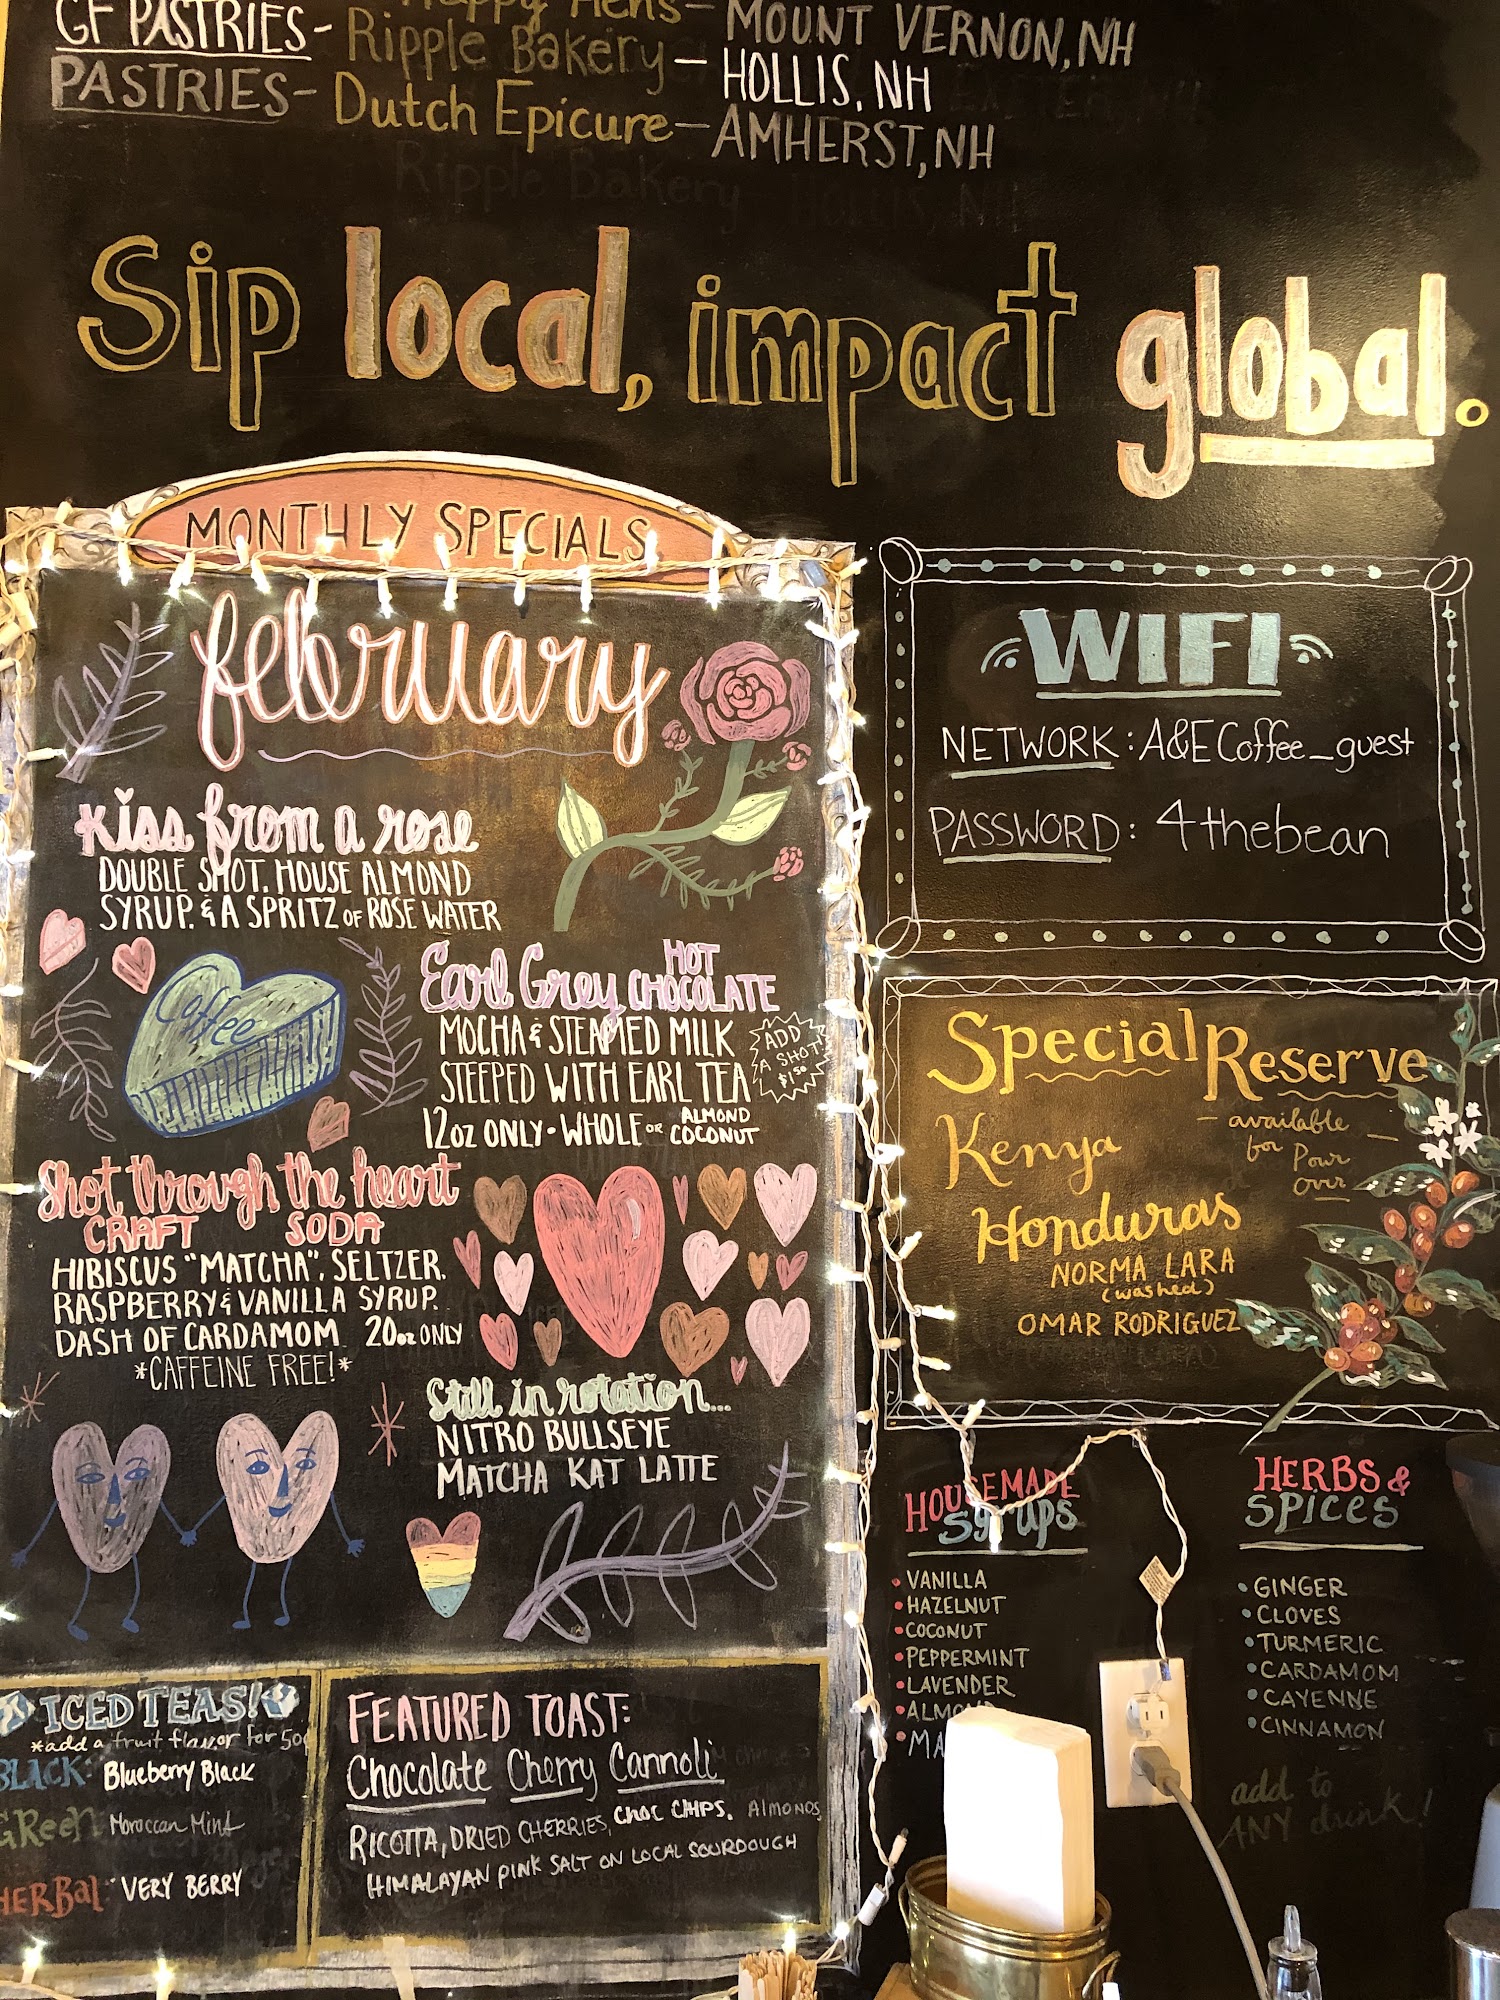 Happy Hens-
GF PASTRIES- Ripple Bakery - MOUNT VERNON, NH
PASTRIES- Dutch Epicure - HOLLIS, NH
AMHERST, NH
Ripple Bakery - HOLLIS, NH
Sip local, impact global.
MONTHLY SPECIALS
february
Kiss from a rose
DOUBLE SHOT, HOUSE ALMOND
SYRUP, & A SPRITZ OF ROSE WATER
Coffee
Earl Grey HOT CHOCOLATE
MOCHA & STEAMED MILK
STEEPED WITH EARL TEA
ADD
A SHOT!
$1.50
12oz ONLY • WHOLE OR ALMOND COCONUT
Shot through the heart
CRAFT SODA
HIBISCUS "MATCHA", SELTZER,
RASPBERRY & VANILLA SYRUP,
DASH OF CARDAMOM 20oz ONLY
*CAFFEINE FREE!*
Still in rotation...
NITRO BULLSEYE
MATCHA KAT LATTE
ICED TEAS!
*add a fruit flavor for 50¢
BLACK: Blueberry Black
GReen: Moroccan Mint
HERBal: VERY BERRY
FEATURED TOAST:
Chocolate Cherry Cannoli
RICOTTA, DRIED CHERRIES, CHOC CHIPS, ALMONDS
HIMALAYAN PINK SALT ON LOCAL SOURDOUGH
WIFI
NETWORK: A&ECoffee_guest
PASSWORD: 4thebean
Special Reserve
- available for Pour over -
Kenya
Honduras
NORMA LARA
(washed)
OMAR RODRIGUEZ
HOUSEMADE
SYRUPS
• VANILLA
• HAZELNUT
• COCONUT
• PEPPERMINT
• LAVENDER
• ALMO
• MA
HERBS &
SPICES
• GINGER
• CLOVES
• TURMERIC
• CARDAMOM
• CAYENNE
• CINNAMON
add to
ANY drink!